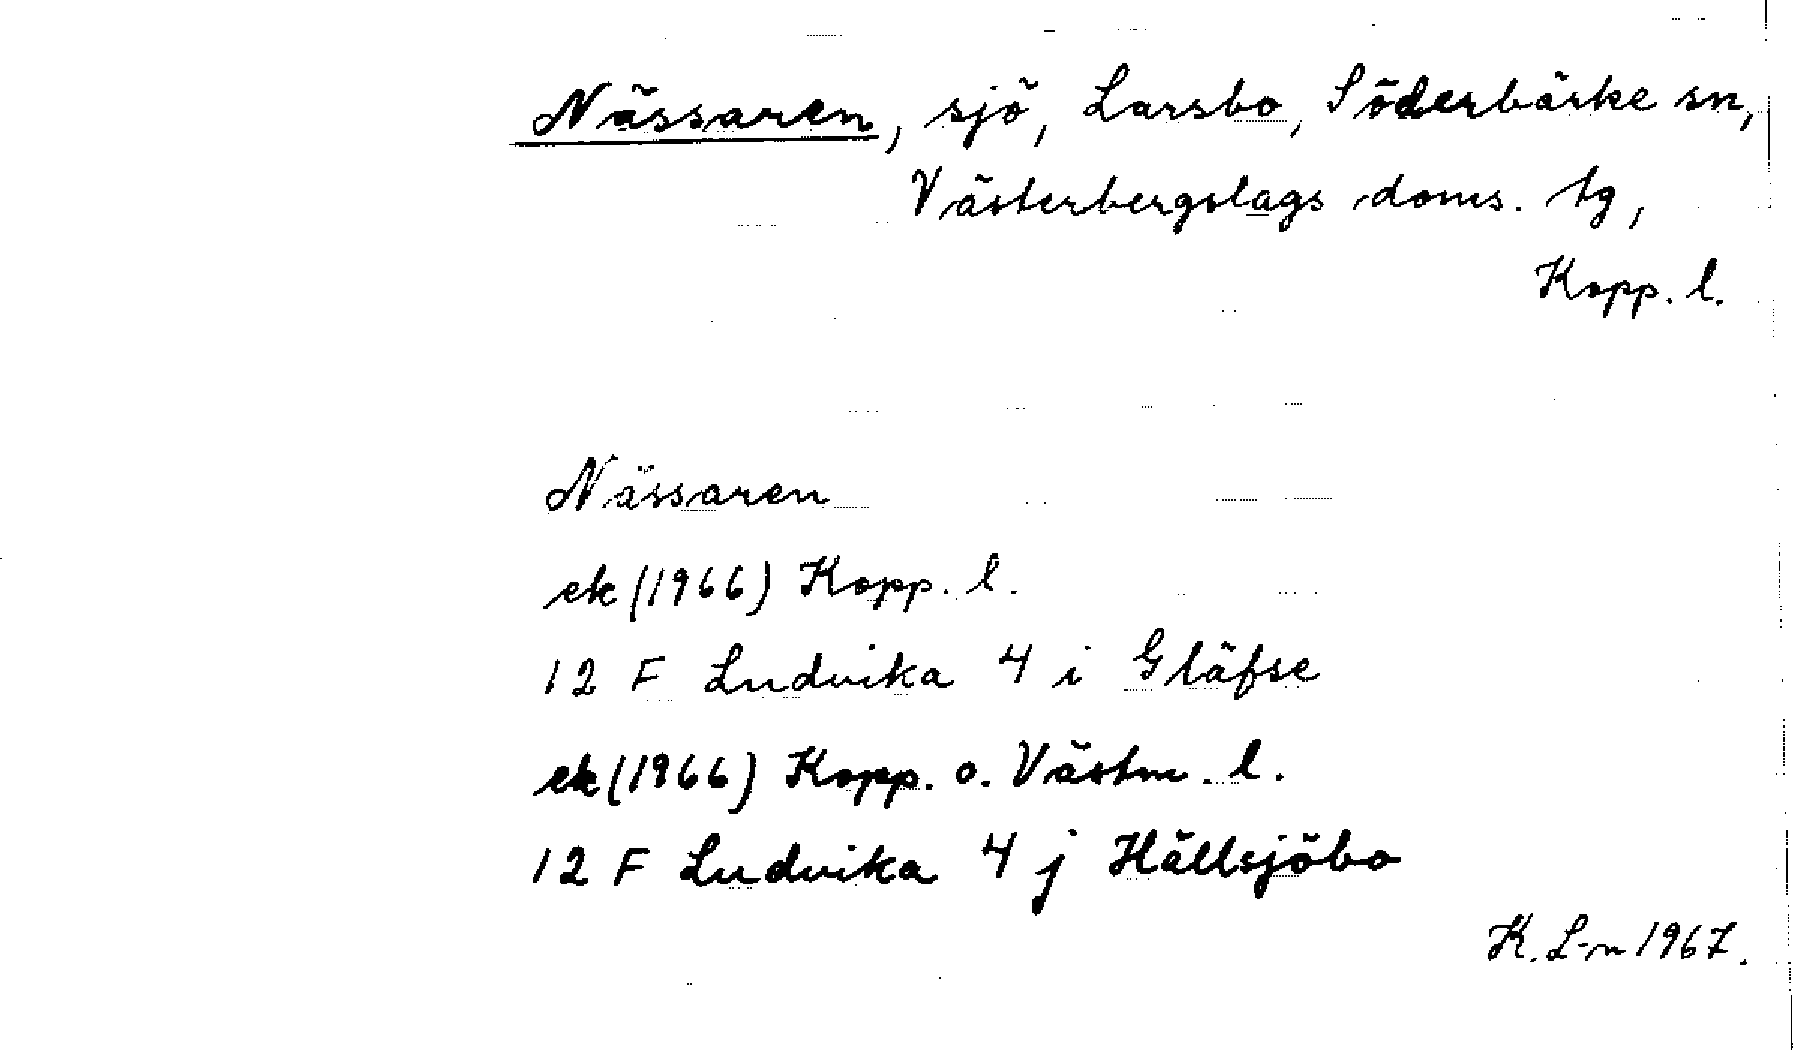 Nässaren, sjö, Larsbo, Söderbärke sn,
Västerbergslags doms. tg,
Kopp. l.
Nässaren
ek (1966) Kopp. l.
12 F Ludvika 4 i Gläfse
ek (1966) Kopp. o. Västm. l.
12 F Ludvika 4 j Hällsjöbo
K. L-n 1967.